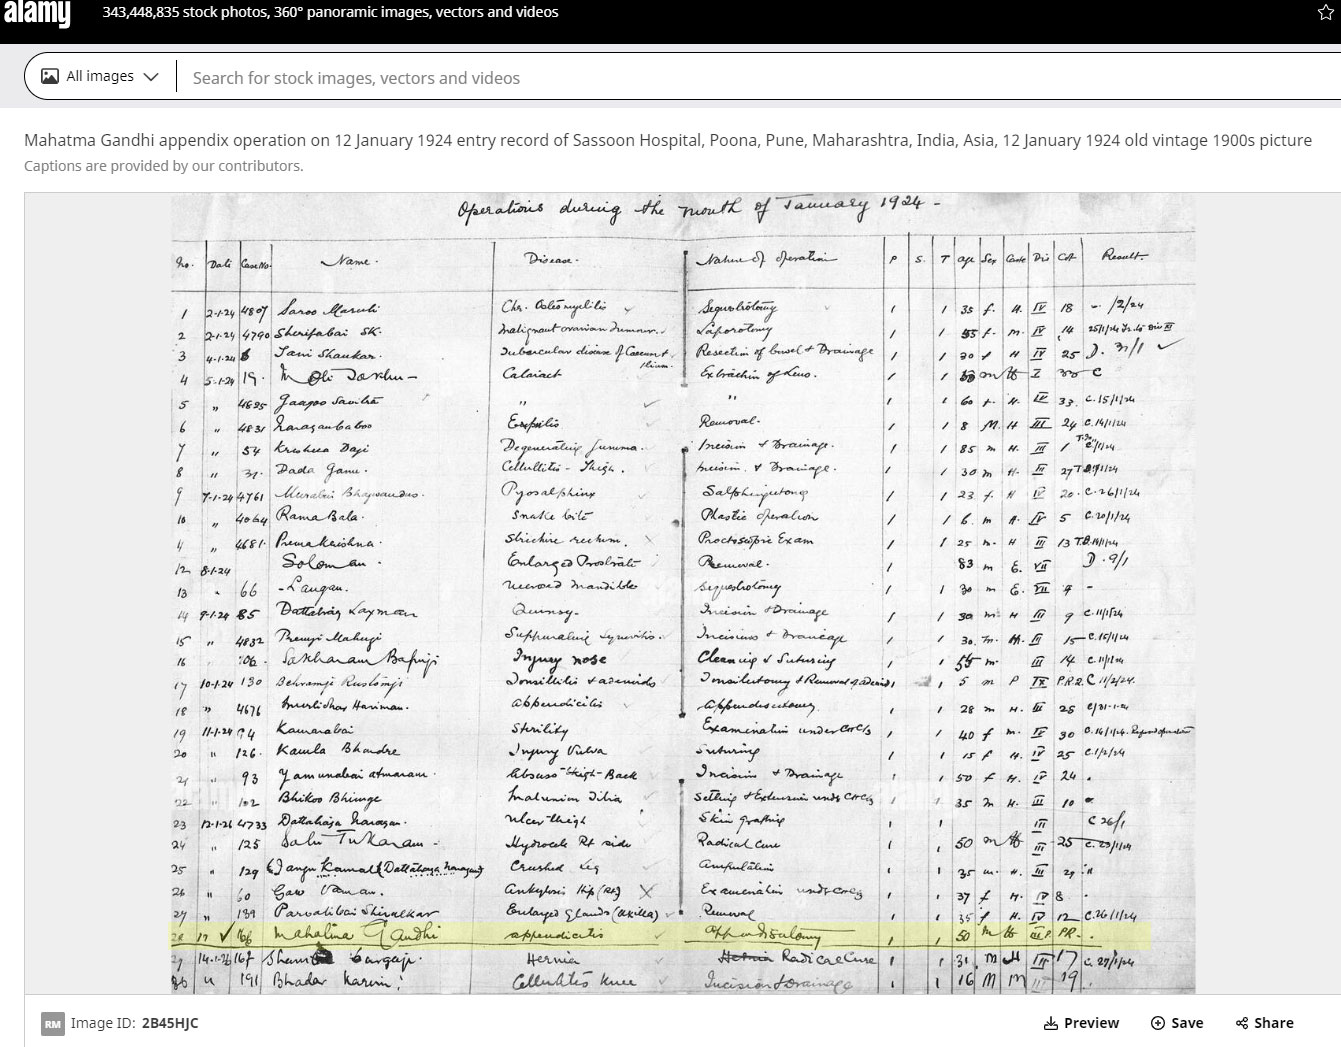 alamy 343,448,835 stock photos, 360° panoramic images, vectors and videos
All images Search for stock images, vectors and videos
Mahatma Gandhi appendix operation on 12 January 1924 entry record of Sassoon Hospital, Poona, Pune, Maharashtra, India, Asia, 12 January 1924 old vintage 1900s picture
Captions are provided by our contributors.
Operations during the month of January 1924 -
No. Date Case No. Name. Disease. Nature of operation P S. T age Sex Caste Dis Result.
1 2-1-24 4807 Saroo Maruti Chr. Osteomyelitis Sequestrotomy 1 1 35 f. H. IV 18 - /2/24
2 2-1-24 4790 Sherifabai SK. Malignant ovarian Tumour. Laporotomy 1 1 55 f. m. IV 14
3 4-1-24 Tani Shankar. Tubercular disease of Caecum & Ilium. Resection of bowel & Drainage 1 1 30 f H IV 25 D. 31/1
4 5-1-24 19. Cataract Extraction of Lens. 1 1 m I C
5 " 4695 Savitra " " 1 1 60 f. H. IV 33. C.15/1/24
6 " 4831 Narayan Removal. 1 1 8 M. H III 24 C.14/1/24
7 " 54 Krishna Daji Degenerating Gumma. Incision & Drainage. 1 1 85 m H. III 1
8 " 31. Dada Ganu. Cellulitis - Thigh. Incision. & Drainage. 1 1 30 m H. III 27
9 7-1-24 4761 Pyosalphinx Salphingectomy 1 1 23 f. H IV 20. C-26/1/24
10 " 4064 Rama Bala. Snake bite Plastic operation 1 1 6. m H. IV 5 C.20/1/24
11 " 4681. Premakrishna. Stricture rectum. Proctoscopic Exam 1 1 25 m. H III 13
12 8-1-24 Soloman. Enlarged Prostrate Removal. 1 83 m E. VII D. 9/1
13 " 66 - Langan. Necrosed mandible Sequestrotomy 1 1 30 m E. VII 9 -
14 9-1-24 85 Dattatray Laxman Quinsy. Incision & Drainage 1 1 30 m H III 9 C.11/1/24
15 " 4832 Premji Suppurating Synovitis. Incisions & Drainage 1 1 30. m. III 15 C.15/1/24
16 106. Sakharam Bapuji Injury nose Cleaning & Suturing 1 1 55 m. III 14 C.11/1/24
17 10-1-24 130 Behramji Rustomji Tonsillitis & adenoids Tonsilectomy & Removal of adenoids 1 1 5 m P IV P.R.R. C 11/2/24.
18 " 4676 Murlidhar Hariman. Appendicitis Appendisectomy. 1 1 28 m H. III 25 C/31-1-24
19 11-1-24 94 Kamarabai Sterility Examination under 1 1 40 f m. IV 30
20 " 126. Kamla Injury Vulva Suturing 1 1 15 f H. IV 25 C.1/2/24
21 " 93 Yamunabai Atmaram. Abscess Thigh - Back Incision & Drainage 1 1 50 f H. IV 24
22 " 102 Bhikoo Malunion Tibia Setting & Extension under 1 1 35 m H. III 10
23 12-1-24 4733 Dattatraya Narayan. Ulcer thigh Skin grafting 1 1 III C 26/1
24 " 125 Tukaram. Hydrocele Rt side Radical Cure 1 1 50 m III 25
25 " 129 Gangu Kamati (Dattatraya Narayan) Crushed Leg Amputation 1 1 35 m. H. III 29
26 " 60 Vaman. Ankylosis Hip (Rt) Examination under 1 1 37 f H. IV 8
27 " 139 Parvatibai Shivalkar Enlarged Glands (axilla) Removal 1 1 35 f H. IV 12 C.26/1/24
28 " 166 Mahatma Gandhi appendicitis appendisetomy 1 1 50 m P.R.
29 14-1-24 167 Hernia Radical Cure 1 1 31. m H III 17 C. 27/1/24
30 " 191 Bhadar Karim. Cellulitis Knee Incision & Drainage 1 1 16 M M III 19
RM Image ID: 2B45HJC Preview Save Share